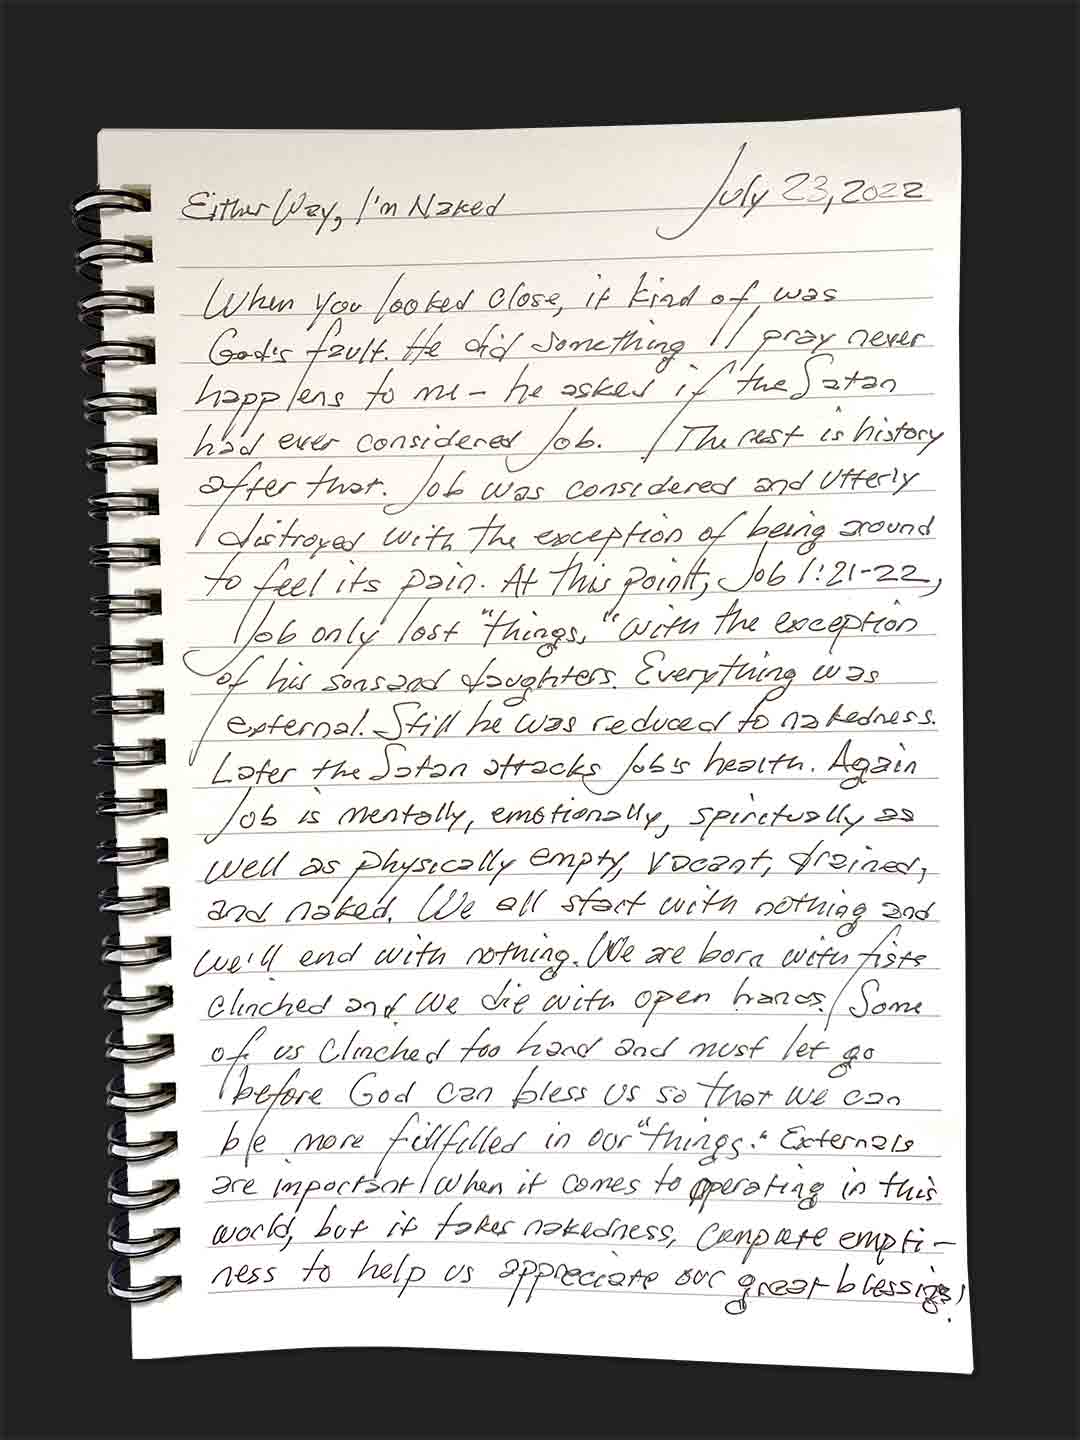 Either Way, I'm Naked July 23, 2022
When you looked close, it kind of was
God's fault. He did something I pray never
happens to me - he asked if the Satan
had ever considered Job. The rest is history
after that. Job was considered and utterly
distroyed with the exception of being around
to feel its pain. At this point, Job 1:21-22,
Job only lost "things," with the exception
of his sons and daughters. Everything was
external. Still he was reduced to nakedness.
Later the Satan attacks Job's health. Again
Job is mentally, emotionally, spirctually as
well as physically empty, vacant, drained,
and naked. We all start with nothing and
we'll end with nothing. We are born with fists
clinched and we die with open hands. Some
of us clinched too hand and must let go
before God can bless us so that we can
be more fillfilled in our "things." Externals
are important when it comes to operating in this
world, but it takes nakedness, complete empti-
ness to help us appreciate our great blessings!